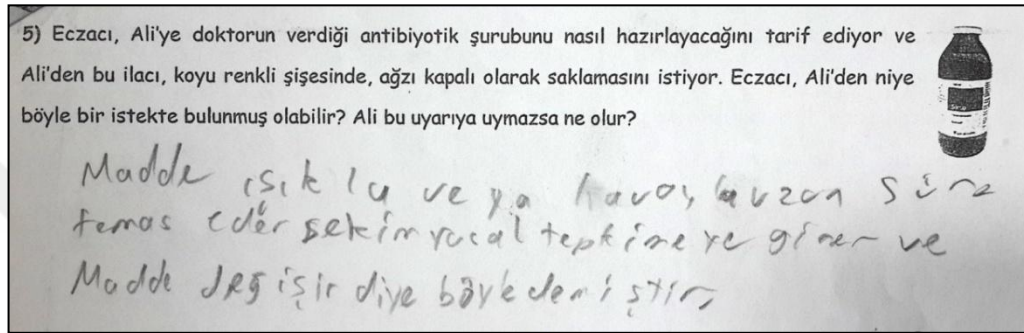 5) Eczacı, Ali'ye doktorun verdiği antibiyotik şurubunu nasıl hazırlayacağını tarif ediyor ve
Ali'den bu ilacı, koyu renkli şişesinde, ağzı kapalı olarak saklamasını istiyor. Eczacı, Ali'den niye
böyle bir istekte bulunmuş olabilir? Ali bu uyarıya uymazsa ne olur?
Madde ışıkla veya havayla uzun süre
temas ederse kimyasal tepkimeye girer ve
Madde değişir diye böyle demiştir